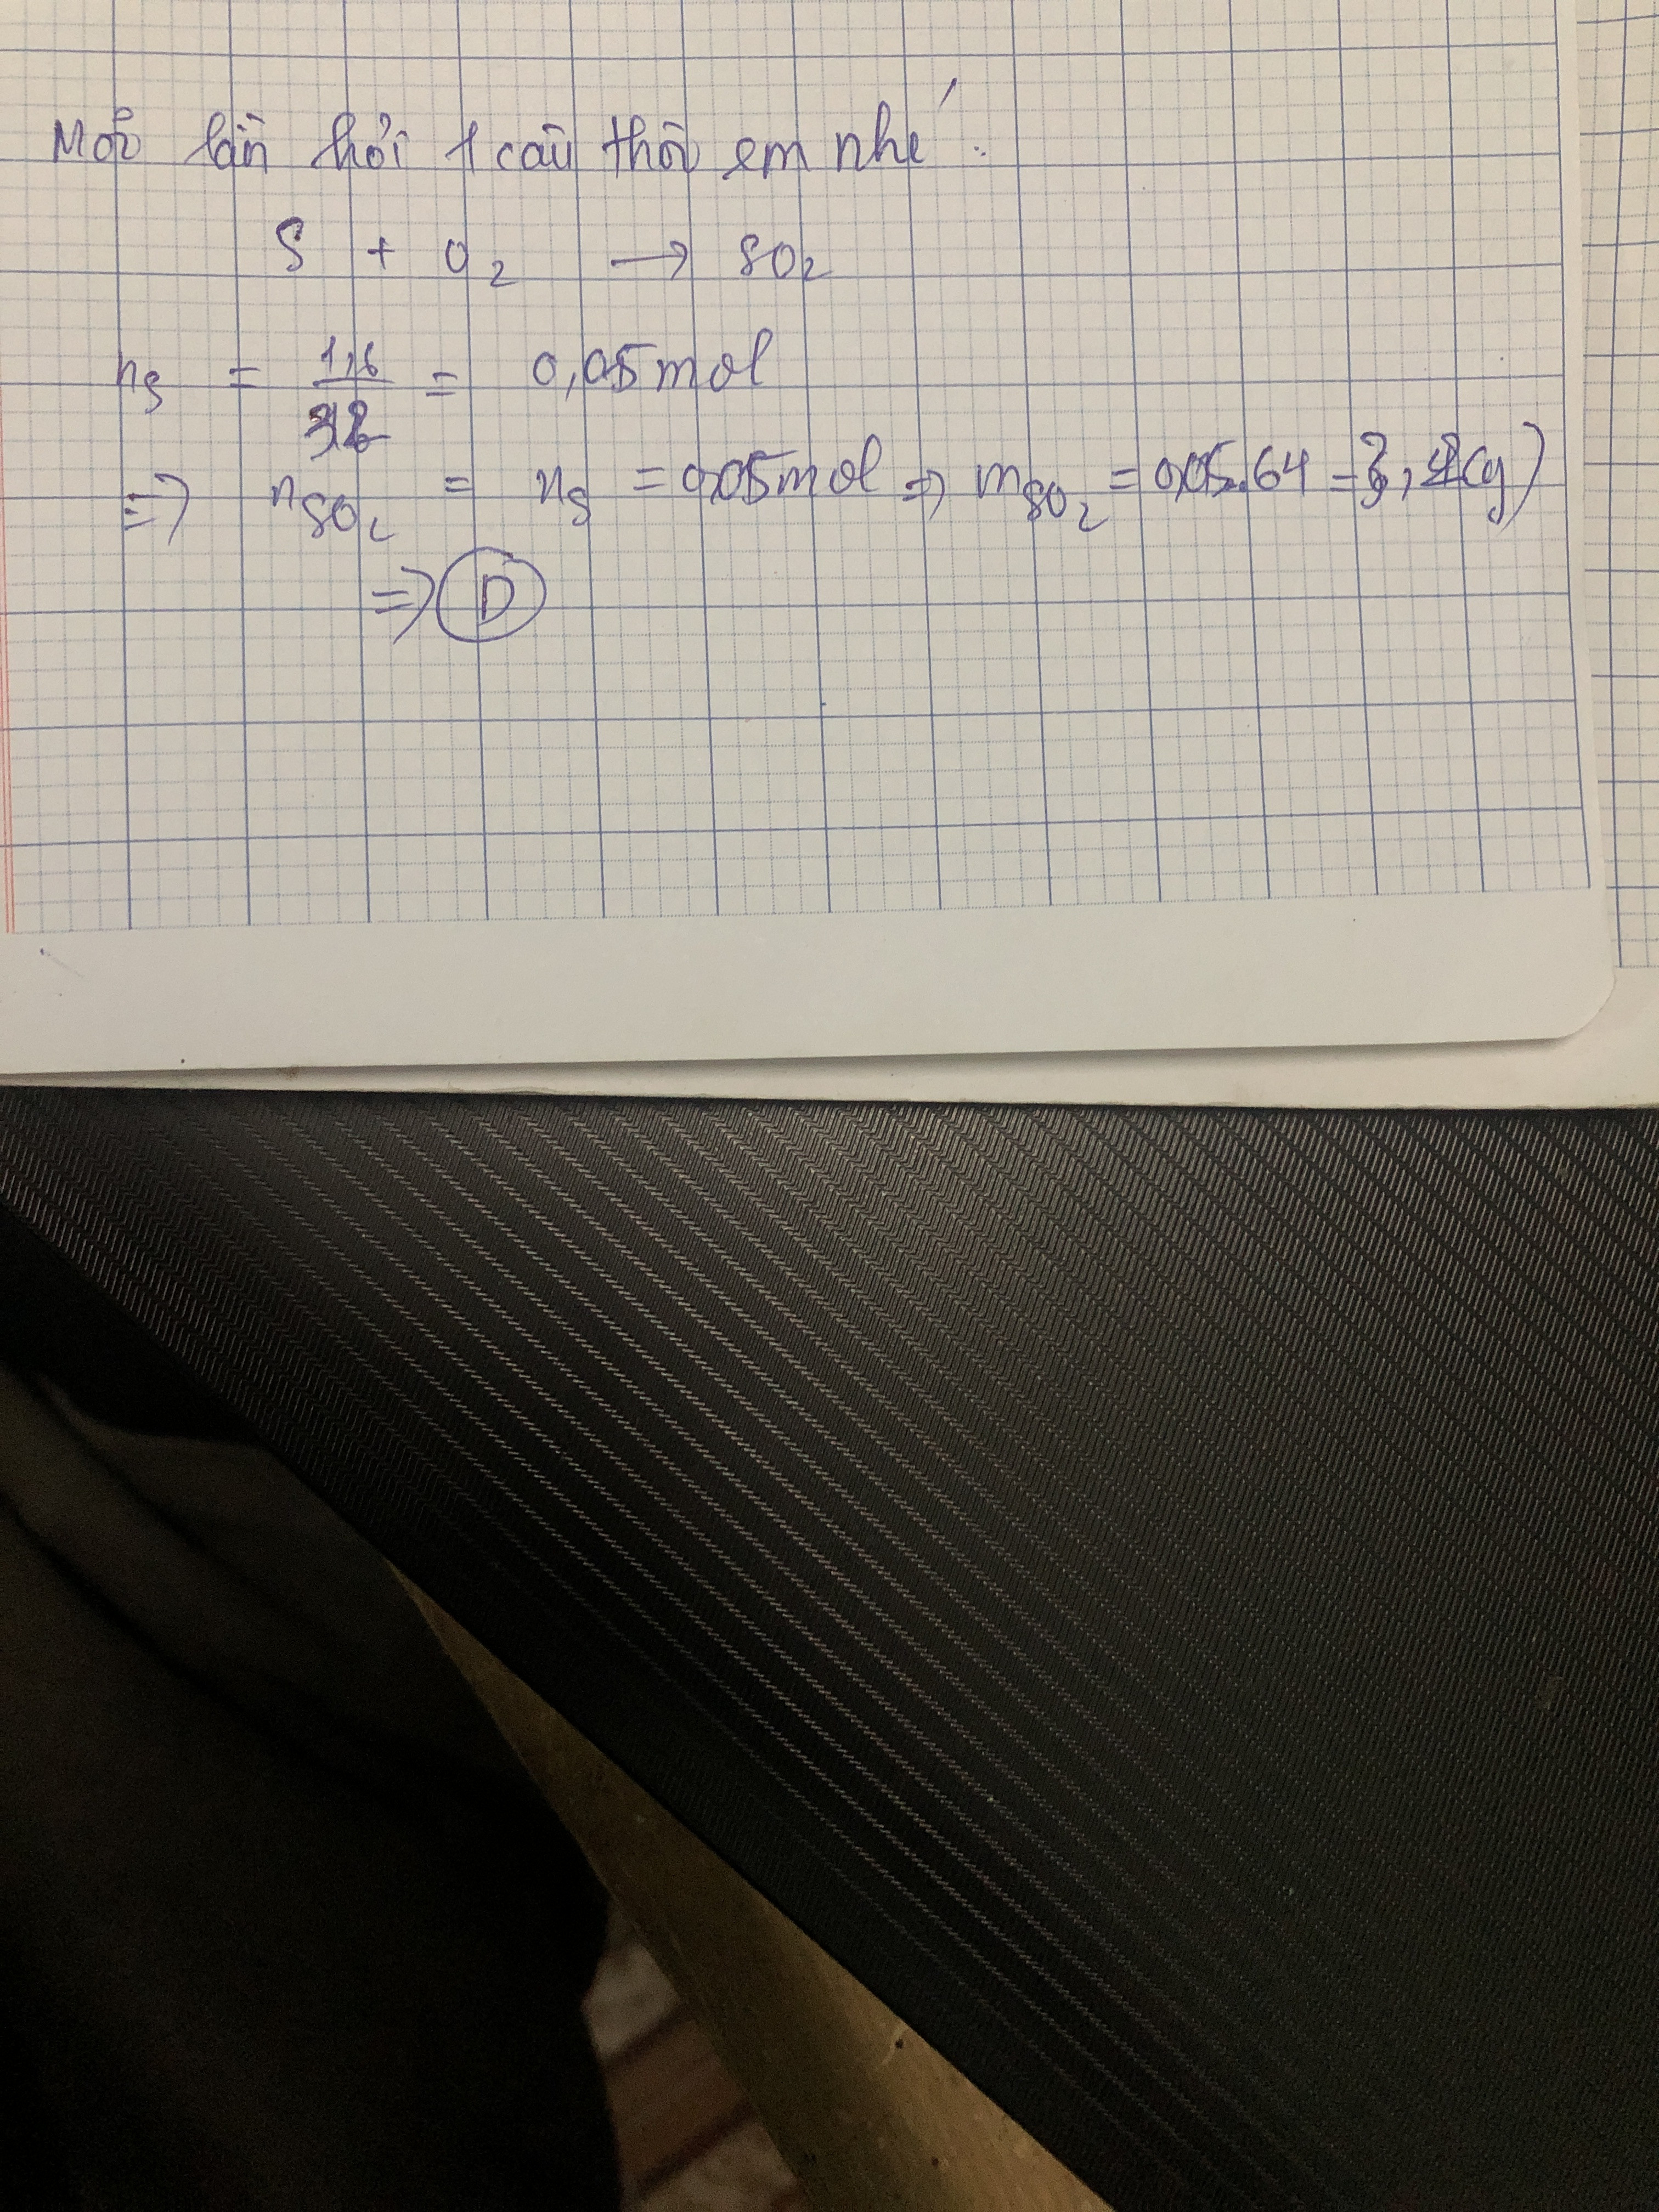 Mỗi lần hỏi 1 câu thôi em nhé.
S + O₂ → SO₂
nS = 1,6/32 = 0,05 mol
=> nSO₂ = nS = 0,05 mol => mSO₂ = 0,05.64 = 3,2 (g)
=> D